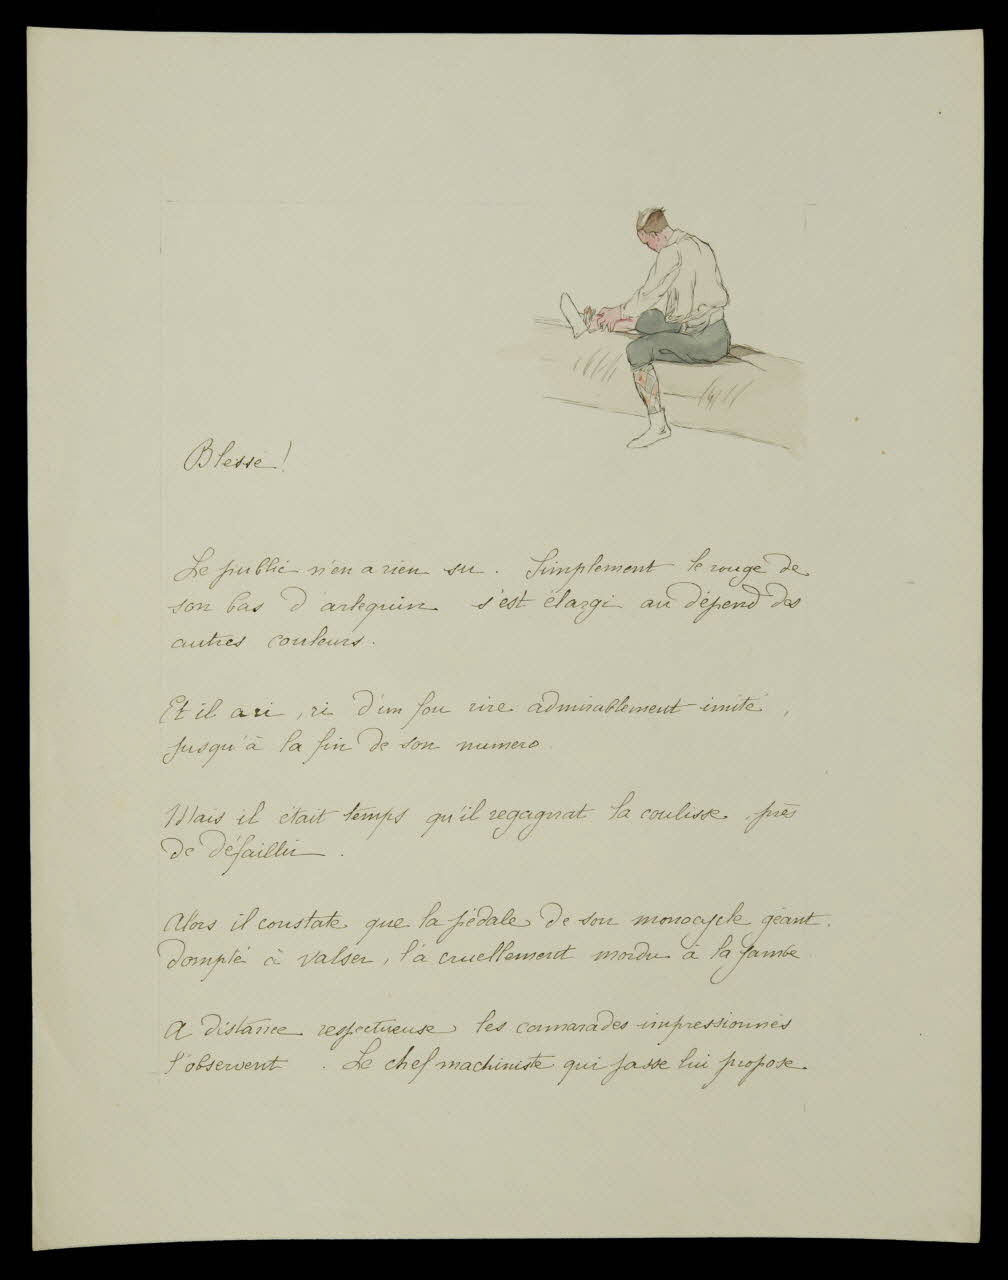 Blessé !
Le public n'en a rien su . Simplement le rouge de
son bas d'arlequin s'est élargi au dépend des
autres couleurs .
Et il a ri , ri d'un fou rire admirablement imité ,
jusqu'à la fin de son numero .
Mais il était temps qu'il regagnat la coulisse , près
de défaillir .
Alors il constate que la pédale de son monocycle géant ,
dompté à valser , l'a cruellement mordu à la jambe .
A distance respectueuse les camarades impressionnés
l'observent . Le chef machiniste qui passe lui propose